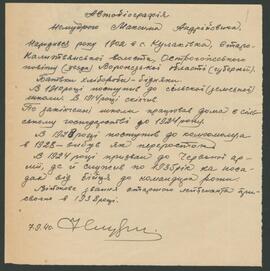 Автобіографія
Максима Андрійовича.
Народився року 1902 в с. Кулаківка, Старо-
волості, Острогозького
повіту Воронежської області (губернії).
Батьки хлібороби - бідняки.
В 1910 році поступив до сільської (земської)
школи. В 1914 році скінчив.
По закінченні школи працював дома в сіль-
ському господарстві до 1924 року.
В 1923 році поступив до комсомолу
в 1928 - вибув як переросток.
В 1924 році призван до Червоної ар-
мії, де й служив по 1935 рік на поса-
дах від бійця до командира роти.
Військове звання старшого лейтенанта при-
своєно в 1938 році.
7.9.40.